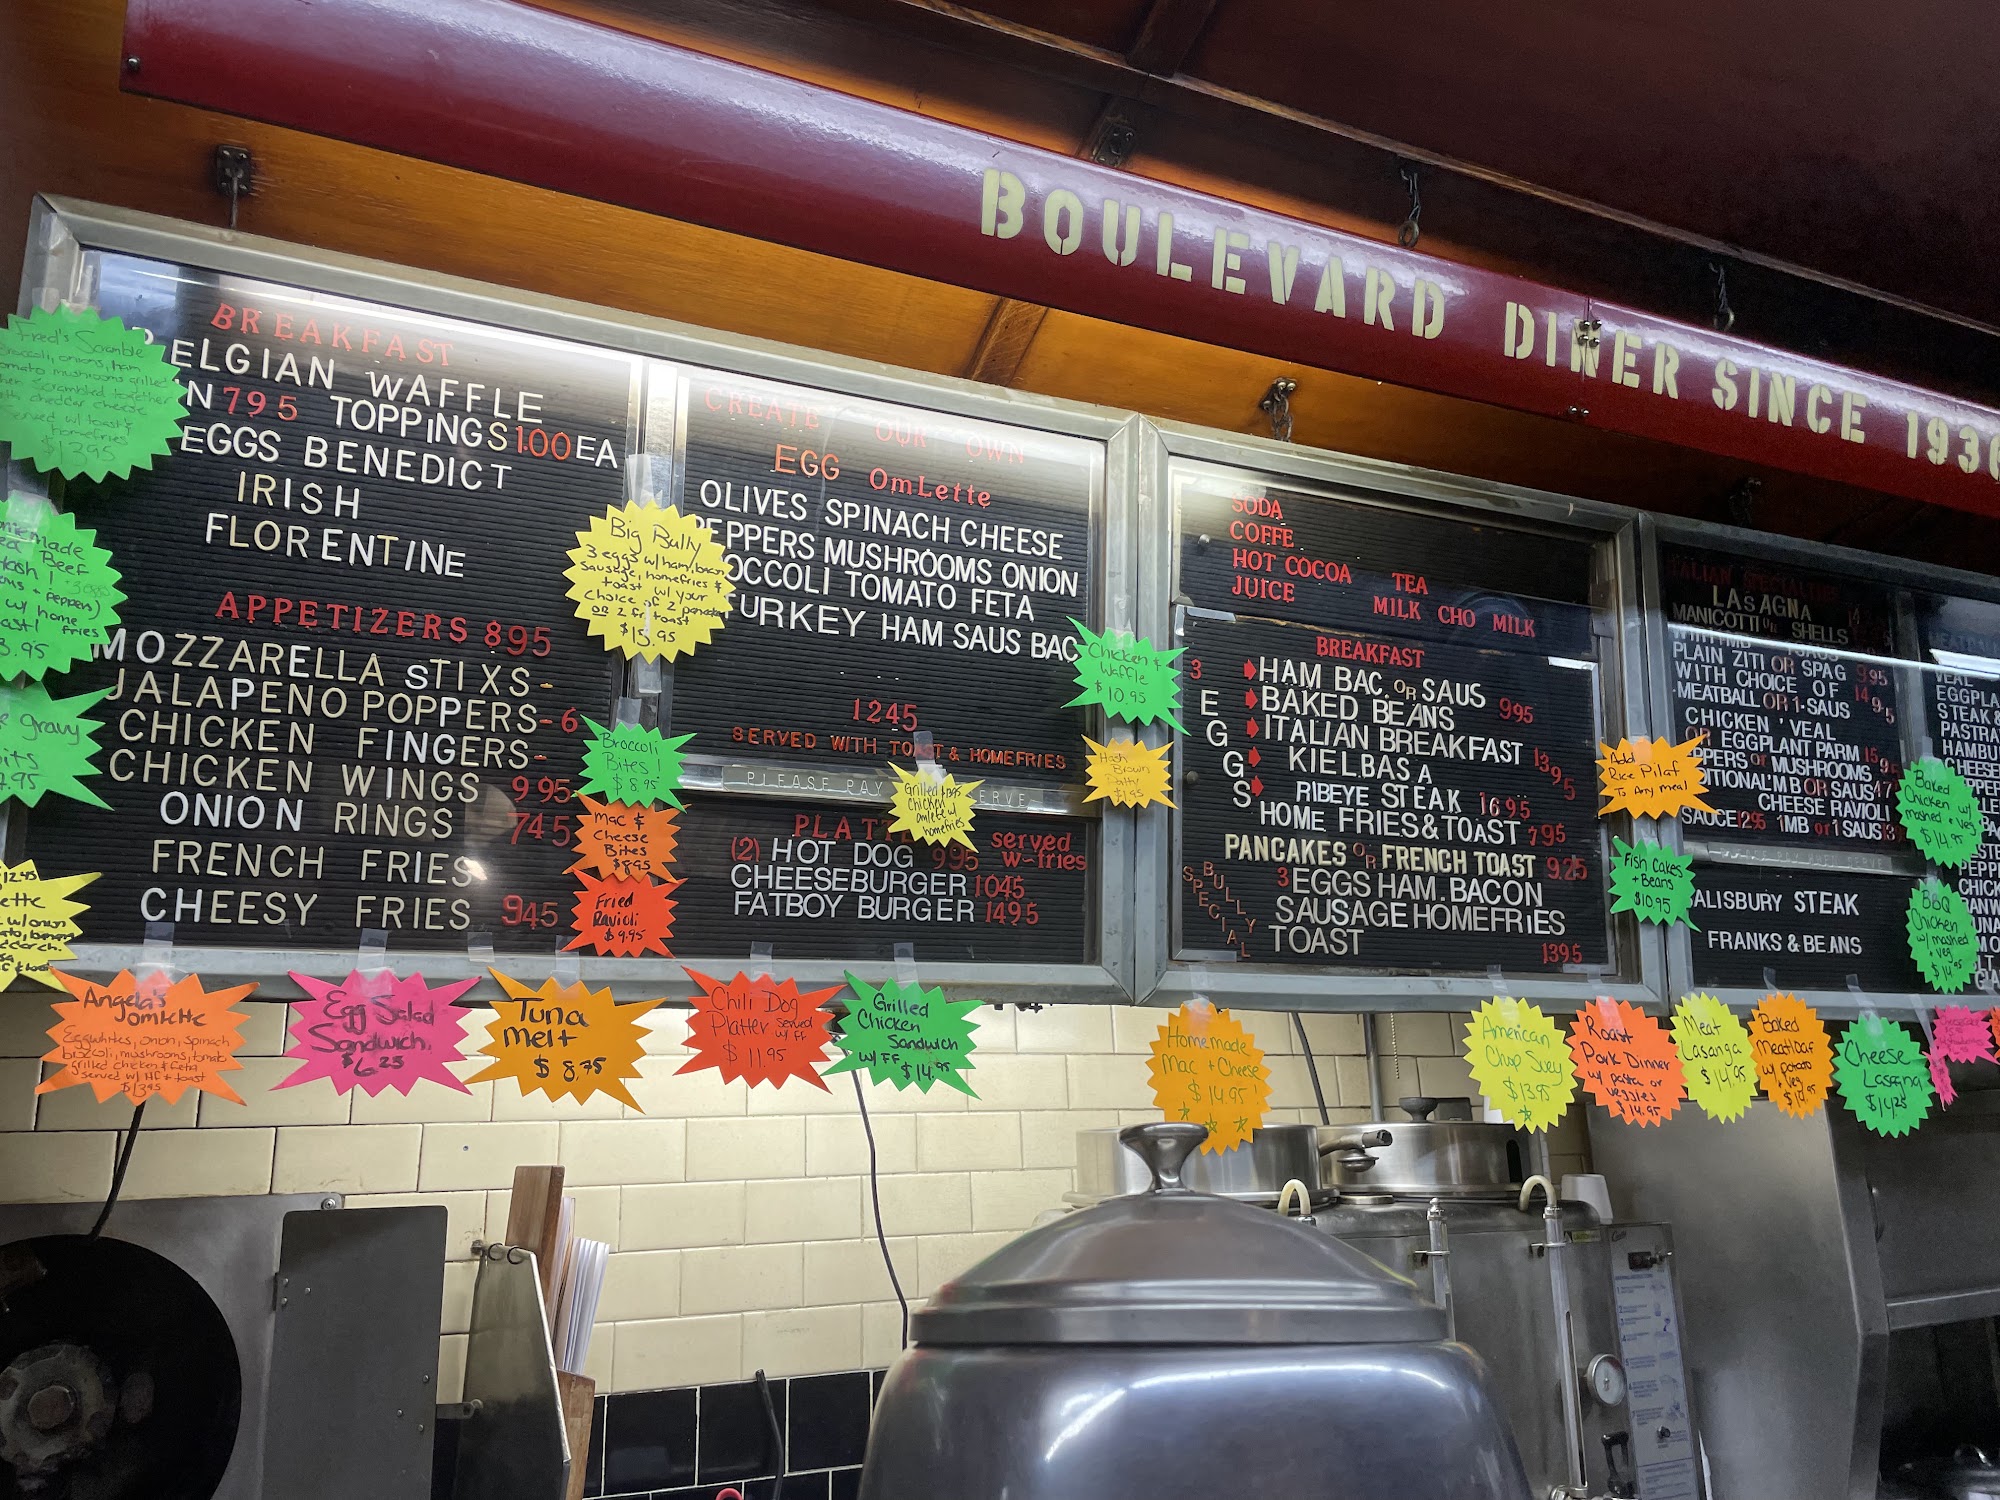 BOULEVARD DINER SINCE 1936
BREAKFAST
ELGIAN WAFFLE
N 795 TOPPINGS 1.00 EA
EGGS BENEDICT
IRISH
FLORENTINE
APPETIZERS 895
MOZZARELLA STIXS-
JALAPENO POPPERS-6
CHICKEN FINGERS-
CHICKEN WINGS 995
ONION RINGS 745
FRENCH FRIES
CHEESY FRIES 945
Fred's Scramble
Broccoli, onions, ham
tomato mushrooms grilled
then scrambled together
with cheddar cheese
served w/ toast &
homefries
$13.95
Hash!
w/ home
fries
gravy
Big Bully
3 eggs w/ ham, bacon
sausage, homefries &
toast w/ your
choice of 2 pancakes
or 2 fr. toast
$15.95
Broccoli
Bites!
$8.95
Mac &
Cheese
Bites
$8.95
Fried
Ravioli
$9.95
CREATE OUR OWN
EGG OmLette
OLIVES SPINACH CHEESE
PEPPERS MUSHROOMS ONION
OCCOLI TOMATO FETA
TURKEY HAM SAUS BAC
1245
SERVED WITH TOAST & HOMEFRIES
PLEASE PAY ERVE
PLATTE served
(2) HOT DOG 995 w-fries
CHEESEBURGER 1045
FATBOY BURGER 1495
Grilled
Chicken
omlete w/
homefries
Chicken &
Waffle
$10.95
Hash
Brown
Patty
$1.95
SODA
COFFE
HOT COCOA TEA
JUICE MILK CHO MILK
BREAKFAST
3 EGGS
HAM BAC OR SAUS 995
BAKED BEANS
ITALIAN BREAKFAST 1395
KIELBASA
RIBEYE STEAK 1695
HOME FRIES & TOAST 795
PANCAKES OR FRENCH TOAST 9.25
BULLY SPECIAL
3 EGGS HAM. BACON
SAUSAGE HOMEFRIES
TOAST 1395
Add
Rice Pilaf
To Any meal
Fish Cakes
+ Beans
$10.95
LASAGNA
MANICOTTI OR SHELLS
PLAIN ZITI OR SPAG 995
WITH CHOICE OF 1495
MEATBALL OR 1-SAUS
CHICKEN ' VEAL
OR EGGPLANT PARM
PPERS OR MUSHROOMS
DITIONAL'MB OR SAUS
CHEESE RAVIOLI
SAUCE 1MB or 1 SAUS
ALISBURY STEAK
FRANKS & BEANS
Baked
Chicken w/
mashed + veg
$14.95
BBQ
Chicken
w/ mashed
+ veg
VEAL
Angela's
omlette
Eggwhites, onion, spinach
broccoli, mushrooms, tomato
grilled chicken & feta
served w/ HF + toast
$13.95
Egg Salad
Sandwich.
$6.25
Tuna
melt
$8.75
Chili Dog
Platter served
w/ FF
$11.95
Grilled
Chicken
Sandwich
w/ FF $14.95
Homemade
Mac + Cheese
$14.95!
American
Chop Suey
$13.95
Roast
Pork Dinner
w/ pasta or
veggies
$14.95
Meat
Lasanga
$14.95
Baked
Meatloaf
w/ potato
+ veg
Cheese
Lasagna
$14.25